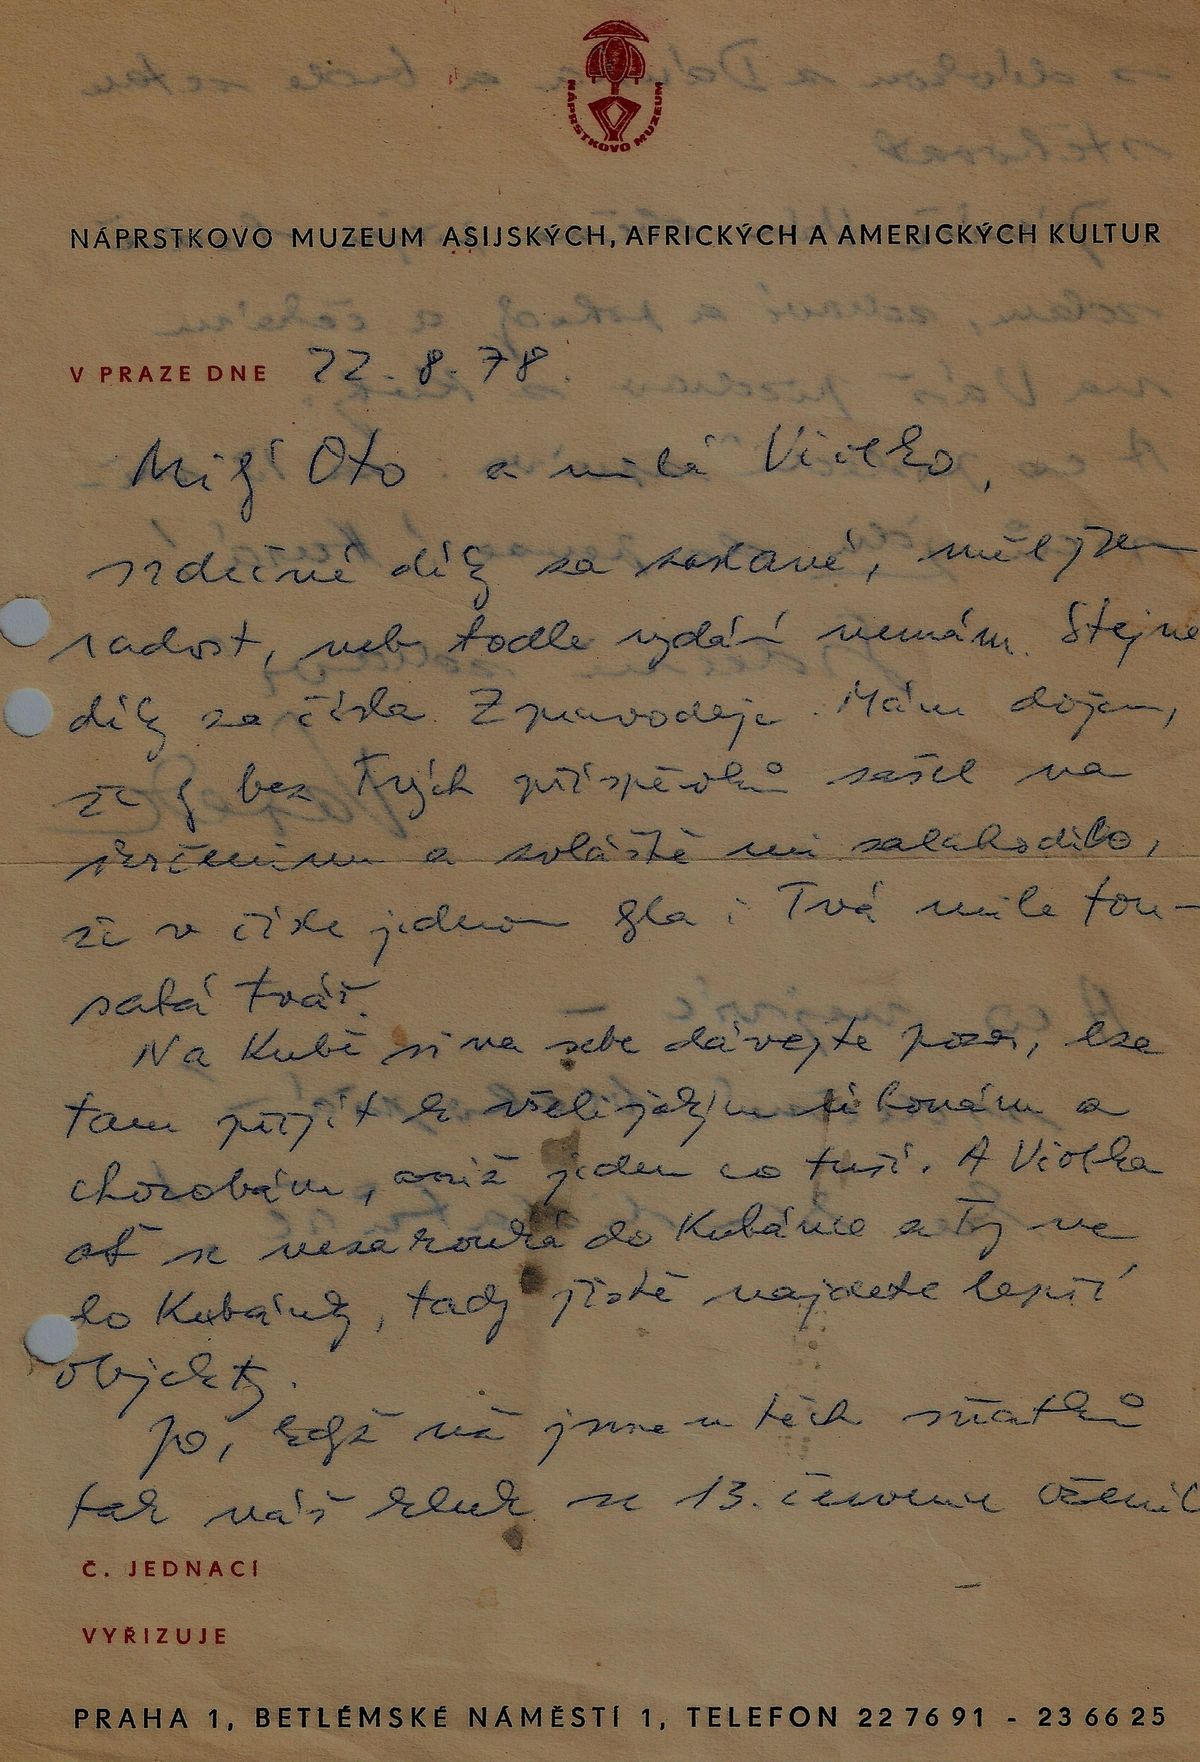 NÁPRSTKOVO MUZEUM
NÁPRSTKOVO MUZEUM ASIJSKÝCH, AFRICKÝCH A AMERICKÝCH KULTUR
V PRAZE DNE 22. 8. 78.
Milý Oto a milá Violko,
srdečné díky za zaslané, měl jsem
radost, neb todle vydání nemám. Stejně
díky za čísla Zpravodaje. Mám dojem,
že by bez Tvých příspěvků zašel na
a zvláště mi zalahodilo,
že v čísle jednom byla i Tvá milá fou-
satá tvář.
Na Kubě si na sebe dávejte pozor, lze
tam přijít k všelijakým úhonám a
chorobám, aniž jeden co tuší. A Violka
ať se nezakouká do Kubánce a Ty ne
do Kubánky, tady jistě najdete lepší
objekty.
Jo, když už jsme u těch sňatků
tak náš kluk se 13. července oženil
Č. JEDNACÍ
VYŘIZUJE
PRAHA 1, BETLÉMSKÉ NÁMĚSTÍ 1, TELEFON 22 76 91 - 23 66 25